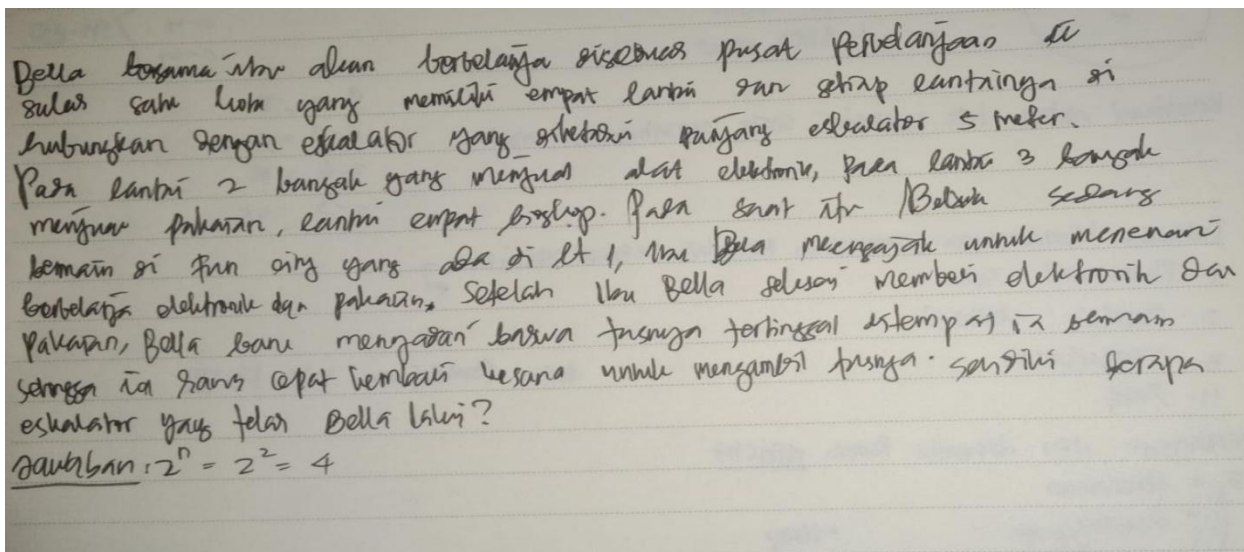 Bella bersama ibu akan berbelanja disebuah pusat perbelanjaan di
salah satu kota yang memiliki empat lantai dan setiap lantainya di
hubungkan dengan eskalator yang diketahui panjang eskalator 5 meter.
Pada lantai 2 banyak yang menjual alat elektronik, pada lantai 3 banyak
menjual pakaian, lantai empat bioskop. Pada saat itu Bella sedang
bemain di fun city yang ada di lt 1, Ibu Bella mengajak untuk menemani
berbelanja elektronik dan pakaian. Setelah Ibu Bella selesai membeli elektronik dan
pakaian, Bella baru menyadari bahwa tasnya tertinggal ditempat ia bermain
sehingga ia harus cepat kembali kesana untuk mengambil tasnya.  berapa
eskalator yang telah Bella lalui?
Jawaban : 2ⁿ = 2² = 4